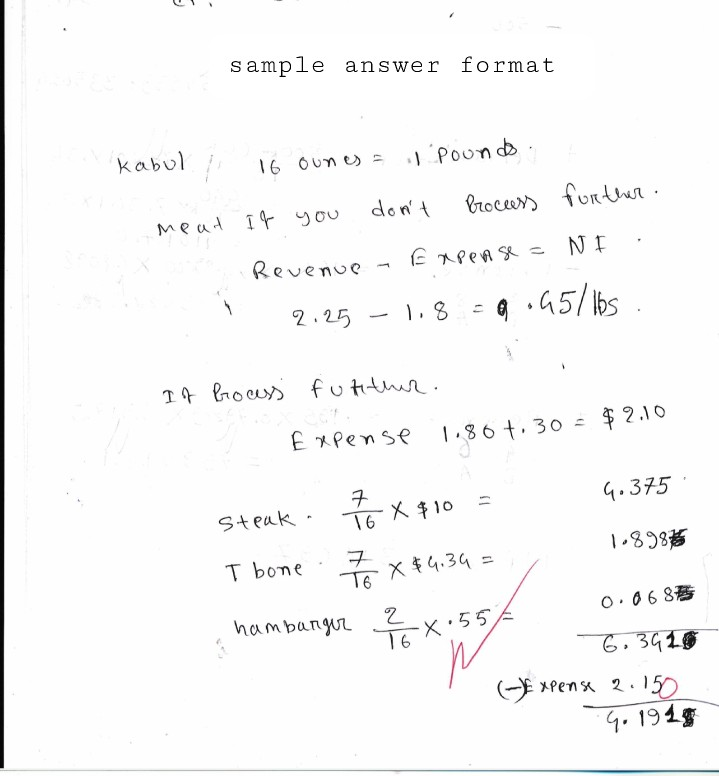 sample answer format
Kabul 16 ounces = .1 Pounds.
meat If you don't Process further.
Revenue - Expense = NI
2.25 - 1.8 = .45/lbs
If Process further.
Expense 1.80 + .30 = $2.10
Steak. 7/16 x $10 = 4.375
T bone 7/16 x $4.34 = 1.898
hambanger 2/16 x .55 = 0.068
6.341
(-) Expense 2.150
4.191